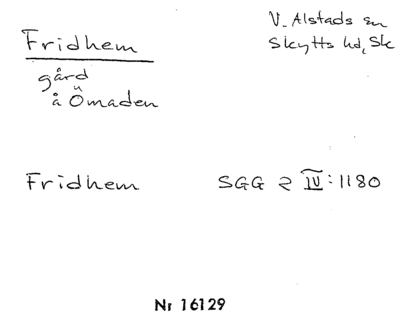 Fridhem
V. Alstads sn
Skytts hd, Sk
gård
å Ömaden
Fridhem SGG 2 IV:1180
Nr 16129